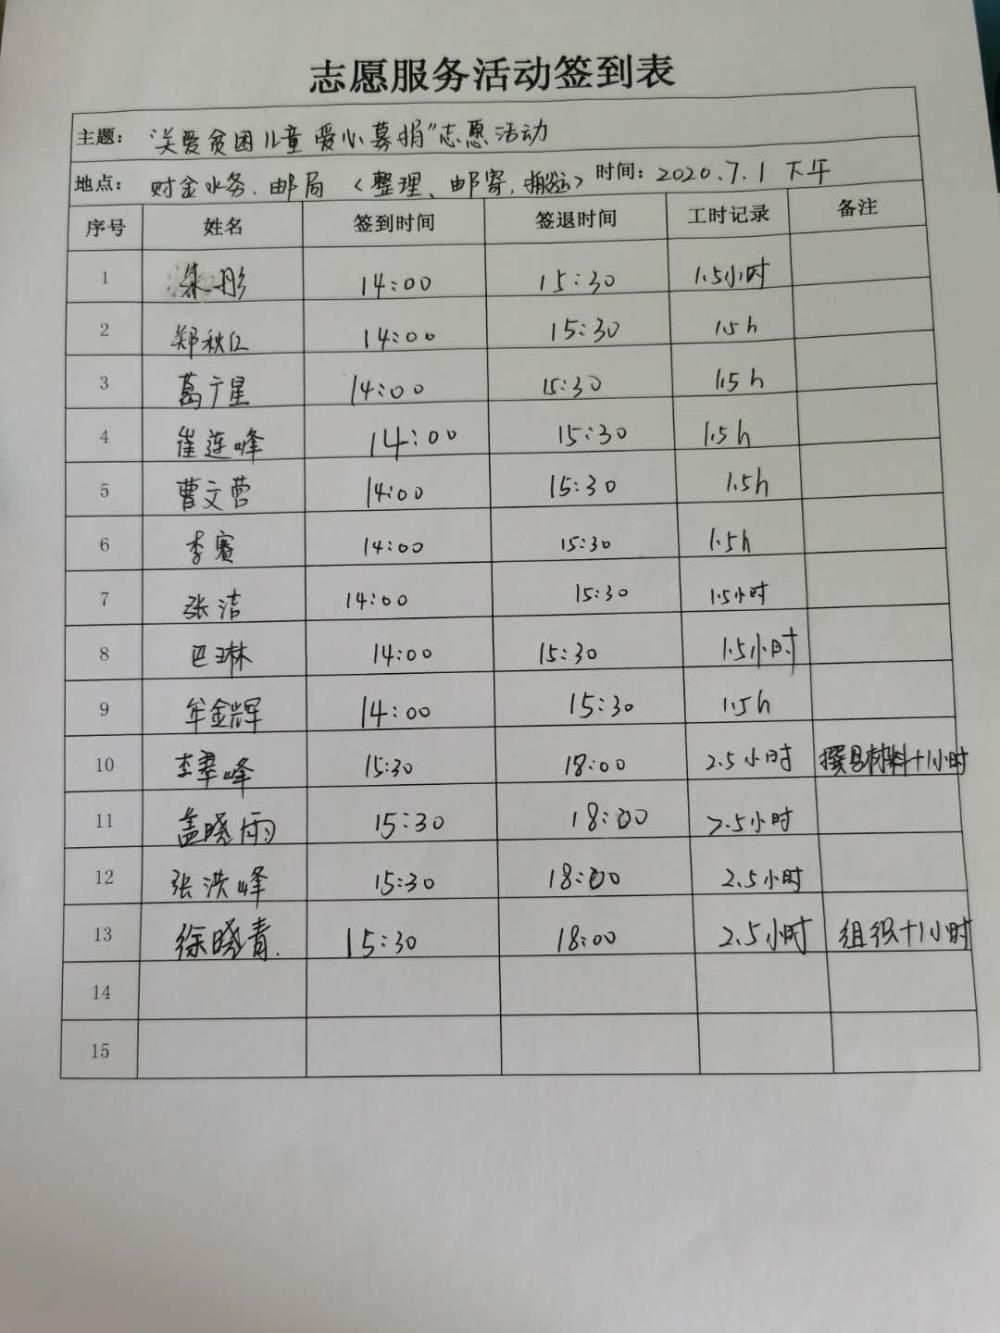 志愿服务活动签到表
主题： "关爱贫困儿童 爱心募捐"志愿活动
地点： 财金水务、邮局 （整理、邮寄、搬运） 时间：2020.7.1 下午
序号 姓名 签到时间 签退时间 工时记录 备注
1 朱彤 14:00 15:30 1.5小时
2 郑秋仁 14:00 15:30 1.5h
3 葛广星 14:00 15:30 1.5h
4 崔莲峰 14:00 15:30 1.5h
5 曹文营 14:00 15:30 1.5h
6 李赛 14:00 15:30 1.5h
7 张洁 14:00 15:30 1.5小时
8 巴琳 14:00 15:30 1.5小时
9 牟金辉 14:00 15:30 1.5h
10 李峰 15:30 18:00 2.5小时 撰写材料+1小时
11 盖晓雨 15:30 18:00 2.5小时
12 张洪峰 15:30 18:00 2.5小时
13 徐晓青. 15:30 18:00 2.5小时 组织+1小时
14
15